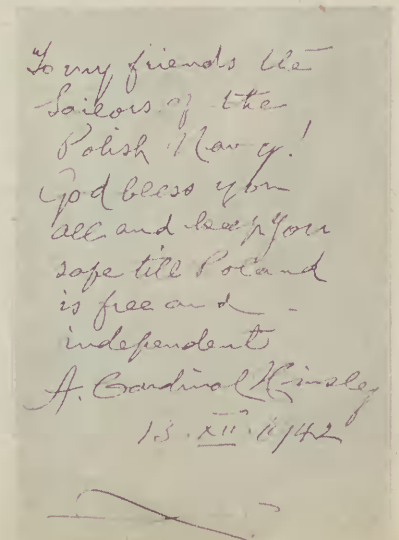 To my friends the
Sailors of the
Polish Navy!
God bless you
all and keep you
safe till Poland
is free and
independent
A. Cardinal Hinsley
13. XII. 1942